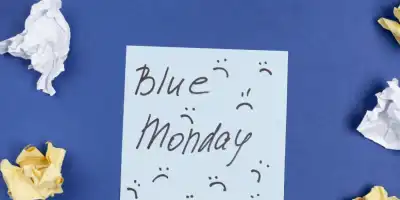 Blue
Monday